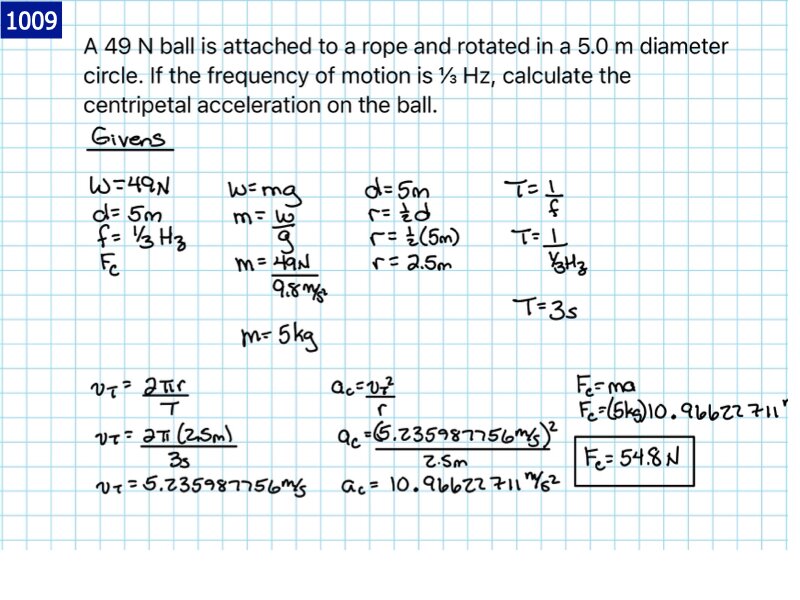 1009
A 49 N ball is attached to a rope and rotated in a 5.0 m diameter
circle. If the frequency of motion is ⅓ Hz, calculate the
centripetal acceleration on the ball.
Givens
W=49N
d= 5m
f= ⅓ Hz
Fc
W=mg
m= w/g
m= 49N/9.8 m/s²
m= 5kg
d=5m
r= ½d
r= ½(5m)
r= 2.5m
T= 1/f
T= 1/⅓Hz
T=3s
v_T = 2πr/T
v_T = 2π(2.5m)/3s
v_T = 5.235987756 m/s
a_c = v_T²/r
a_c = (5.235987756 m/s)²/2.5m
a_c = 10.96622711 m/s²
Fc=ma
Fc=(5kg)10.96622711 m
Fc= 54.8 N